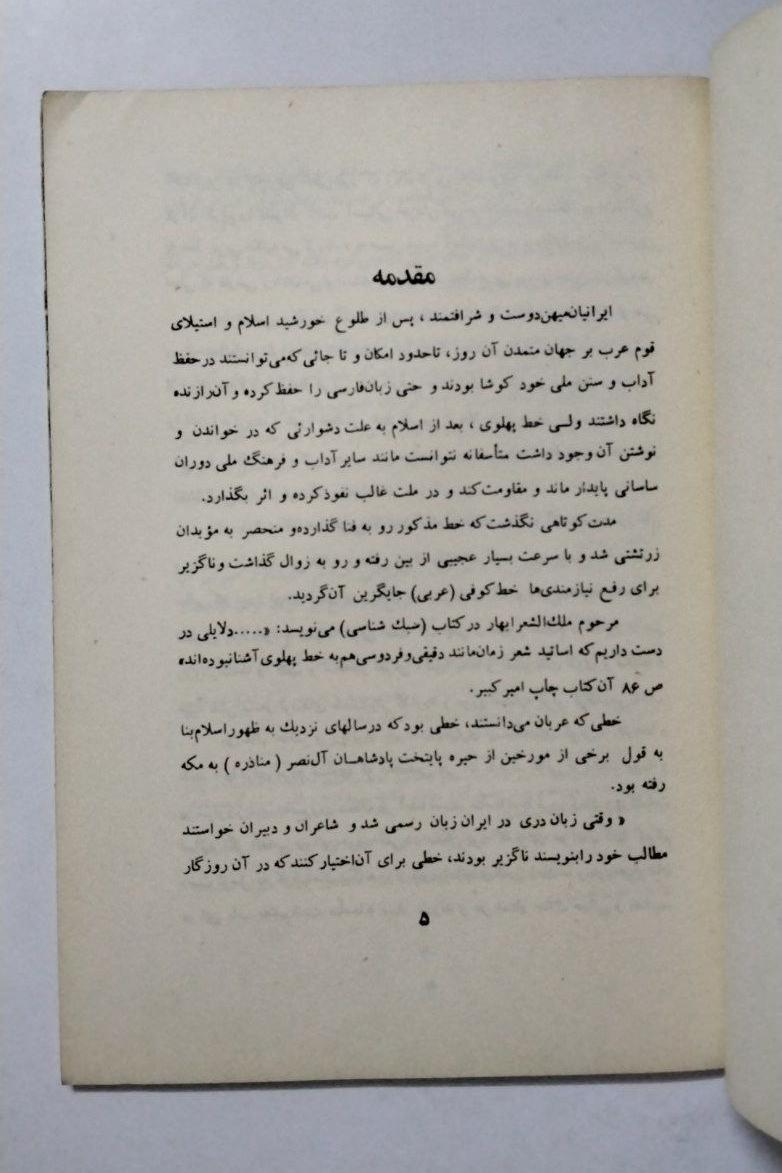 مقدمه
ایرانیان میهن‌دوست و شرافتمند ، پس از طلوع خورشید اسلام و استیلای
قوم عرب بر جهان متمدن آن روز، تاحدود امکان و تا جائی که می‌توانستند درحفظ
آداب و سنن ملی خود کوشا بودند و حتی زبان‌فارسی را حفظ کرده و آن‌رازنده
نگاه داشتند ولی خط پهلوی ، بعد از اسلام به علت دشوارئی که در خواندن و
نوشتن آن وجود داشت متأسفانه نتوانست مانند سایر آداب و فرهنگ ملی دوران
ساسانی پایدار ماند و مقاومت کند و در ملت غالب نفوذ کرده و اثر بگذارد.
مدت کوتاهی نگذشت که خط مذکور رو به فنا گذارده‌و منحصر به مؤبدان
زرتشتی شد و با سرعت بسیار عجیبی از بین رفته و رو به زوال گذاشت و ناگزیر
برای رفع نیازمندی‌ها خط کوفی (عربی) جایگرین آن گردید.
مرحوم ملك‌الشعرا بهار در کتاب (سبك شناسی) می‌نویسد: «.....دلایلی در
دست داریم که اساتید شعر زمان‌مانند دقیقی‌و فردوسی هم به خط پهلوی آشنا نبوده‌اند»
ص ۸۶ آن کتاب چاپ امیر کبیر.
خطی که عربان می‌دانستند، خطی بود که در سالهای نزدیك به ظهور اسلام بنا
به قول برخی از مورخین از حیره پایتخت پادشاهان آل‌نصر ( مناذره ) به مکه
رفته بود.
« وقتی زبان دری در ایران زبان رسمی شد و شاعران و دبیران خواستند
مطالب خود را بنویسند ناگزیر بودند، خطی برای آن اختیار کنند که در آن روزگار
۵